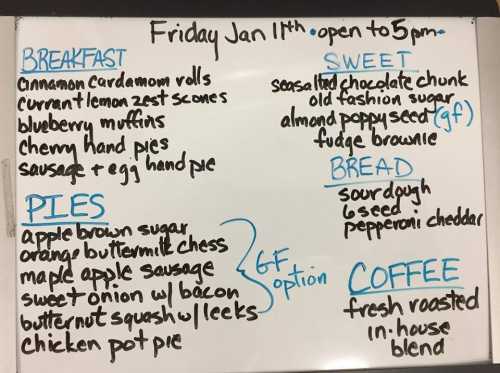 Friday Jan 11th • open to 5pm •
BREAKFAST
cinnamon cardamom rolls
currant lemon zest scones
blueberry muffins
cherry hand pies
sausage + egg hand pie
PIES
apple brown sugar
orange buttermilk chess
maple apple sausage
sweet onion w/ bacon
butternut squash w/ leeks
chicken pot pie
GF
option
SWEET
seasalted chocolate chunk
old fashion sugar
almond poppyseed (gf)
fudge brownie
BREAD
sourdough
6 seed
pepperoni cheddar
COFFEE
fresh roasted
in-house
blend